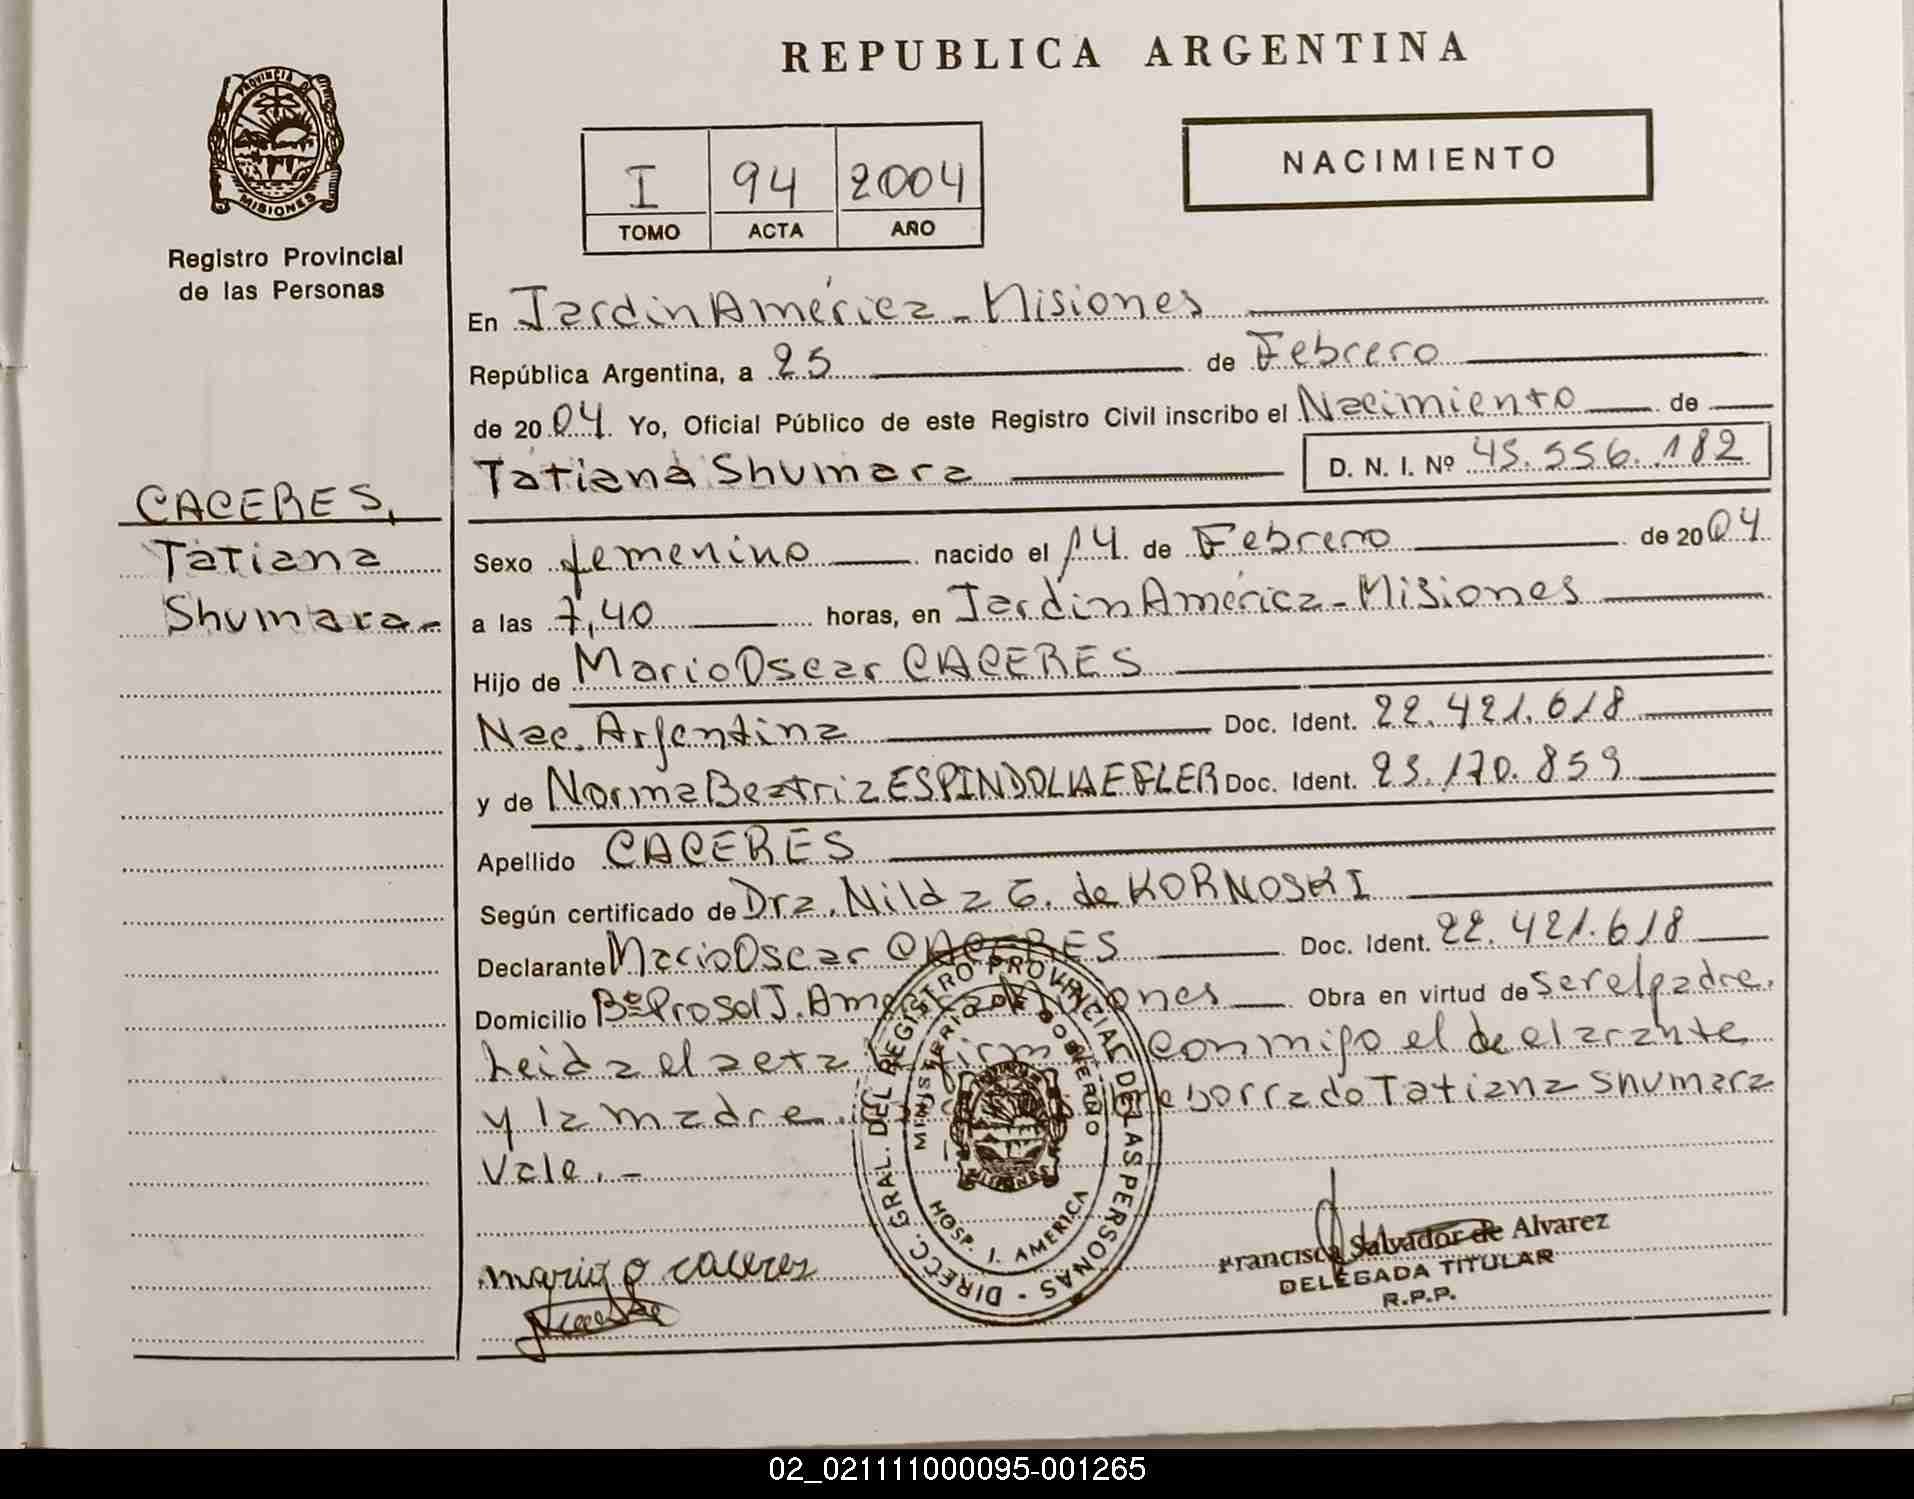 REPUBLICA ARGENTINA
PROVINCIA DE
MISIONES
Registro Provincial
de las Personas
I 94 2004
TOMO ACTA AÑO
NACIMIENTO
En Jardin América - Misiones
República Argentina, a 25 de Febrero
de 2004. Yo, Oficial Público de este Registro Civil inscribo el Nacimiento de
Tatiana Shumara D. N. I. Nº 45.556.182
CACERES,
Tatiana
Shumara-
Sexo femenino nacido el 14 de Febrero de 2004
a las 7,40 horas, en Jardin América - Misiones
Hijo de Mario Oscar CACERES
Nac. Argentina Doc. Ident. 22.421.618
y de Norma Beatriz ESPINDOLA Doc. Ident. 23.170.859
Apellido CACERES
Según certificado de Dra. Nilda G. de KORNOSKI
Declarante Mario Oscar CACERES Doc. Ident. 22.421.618
Domicilio Bº Prosol J. America Misiones Obra en virtud de ser el padre.
Leida el acta firma conmigo el declarante
y la madre. Sobreborrado Tatiana Shumara
Vale.-
DIRECC. GRAL. DEL REGISTRO PROVINCIAL DE LAS PERSONAS -
MINISTERIO DE GOBIERNO
MISIONES
HOSP. J. AMERICA
mario o caceres
Francisca Salvador de Alvarez
DELEGADA TITULAR
R.P.P.
02_021111000095-001265